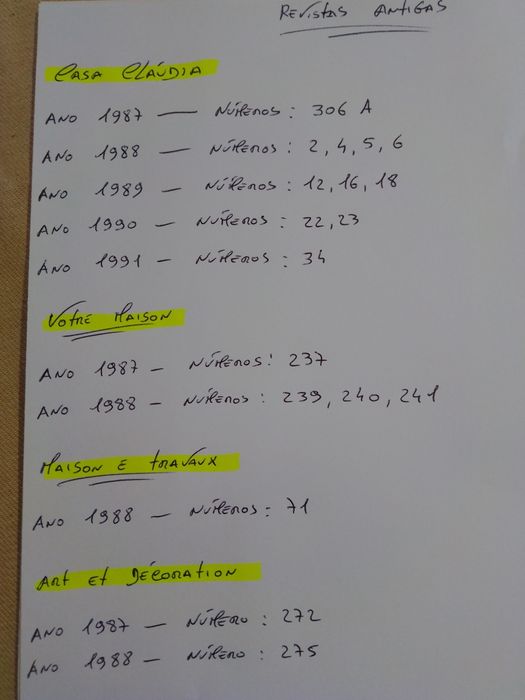 REVISTAS ANTIGAS
CASA CLÁUDIA
ANO 1987 — NÚMEROS : 306 A
ANO 1988 — NÚMEROS : 2, 4, 5, 6
ANO 1989 — NÚMEROS : 12, 16, 18
ANO 1990 — NÚMEROS : 22, 23
ANO 1991 — NÚMEROS : 34
VOTRE MAISON
ANO 1987 — NÚMEROS : 237
ANO 1988 — NÚMEROS : 239, 240, 241
MAISON E TRAVAUX
ANO 1988 — NÚMEROS : 71
ART ET DÉCORATION
ANO 1987 — NÚMERO : 272
ANO 1988 — NÚMERO : 275